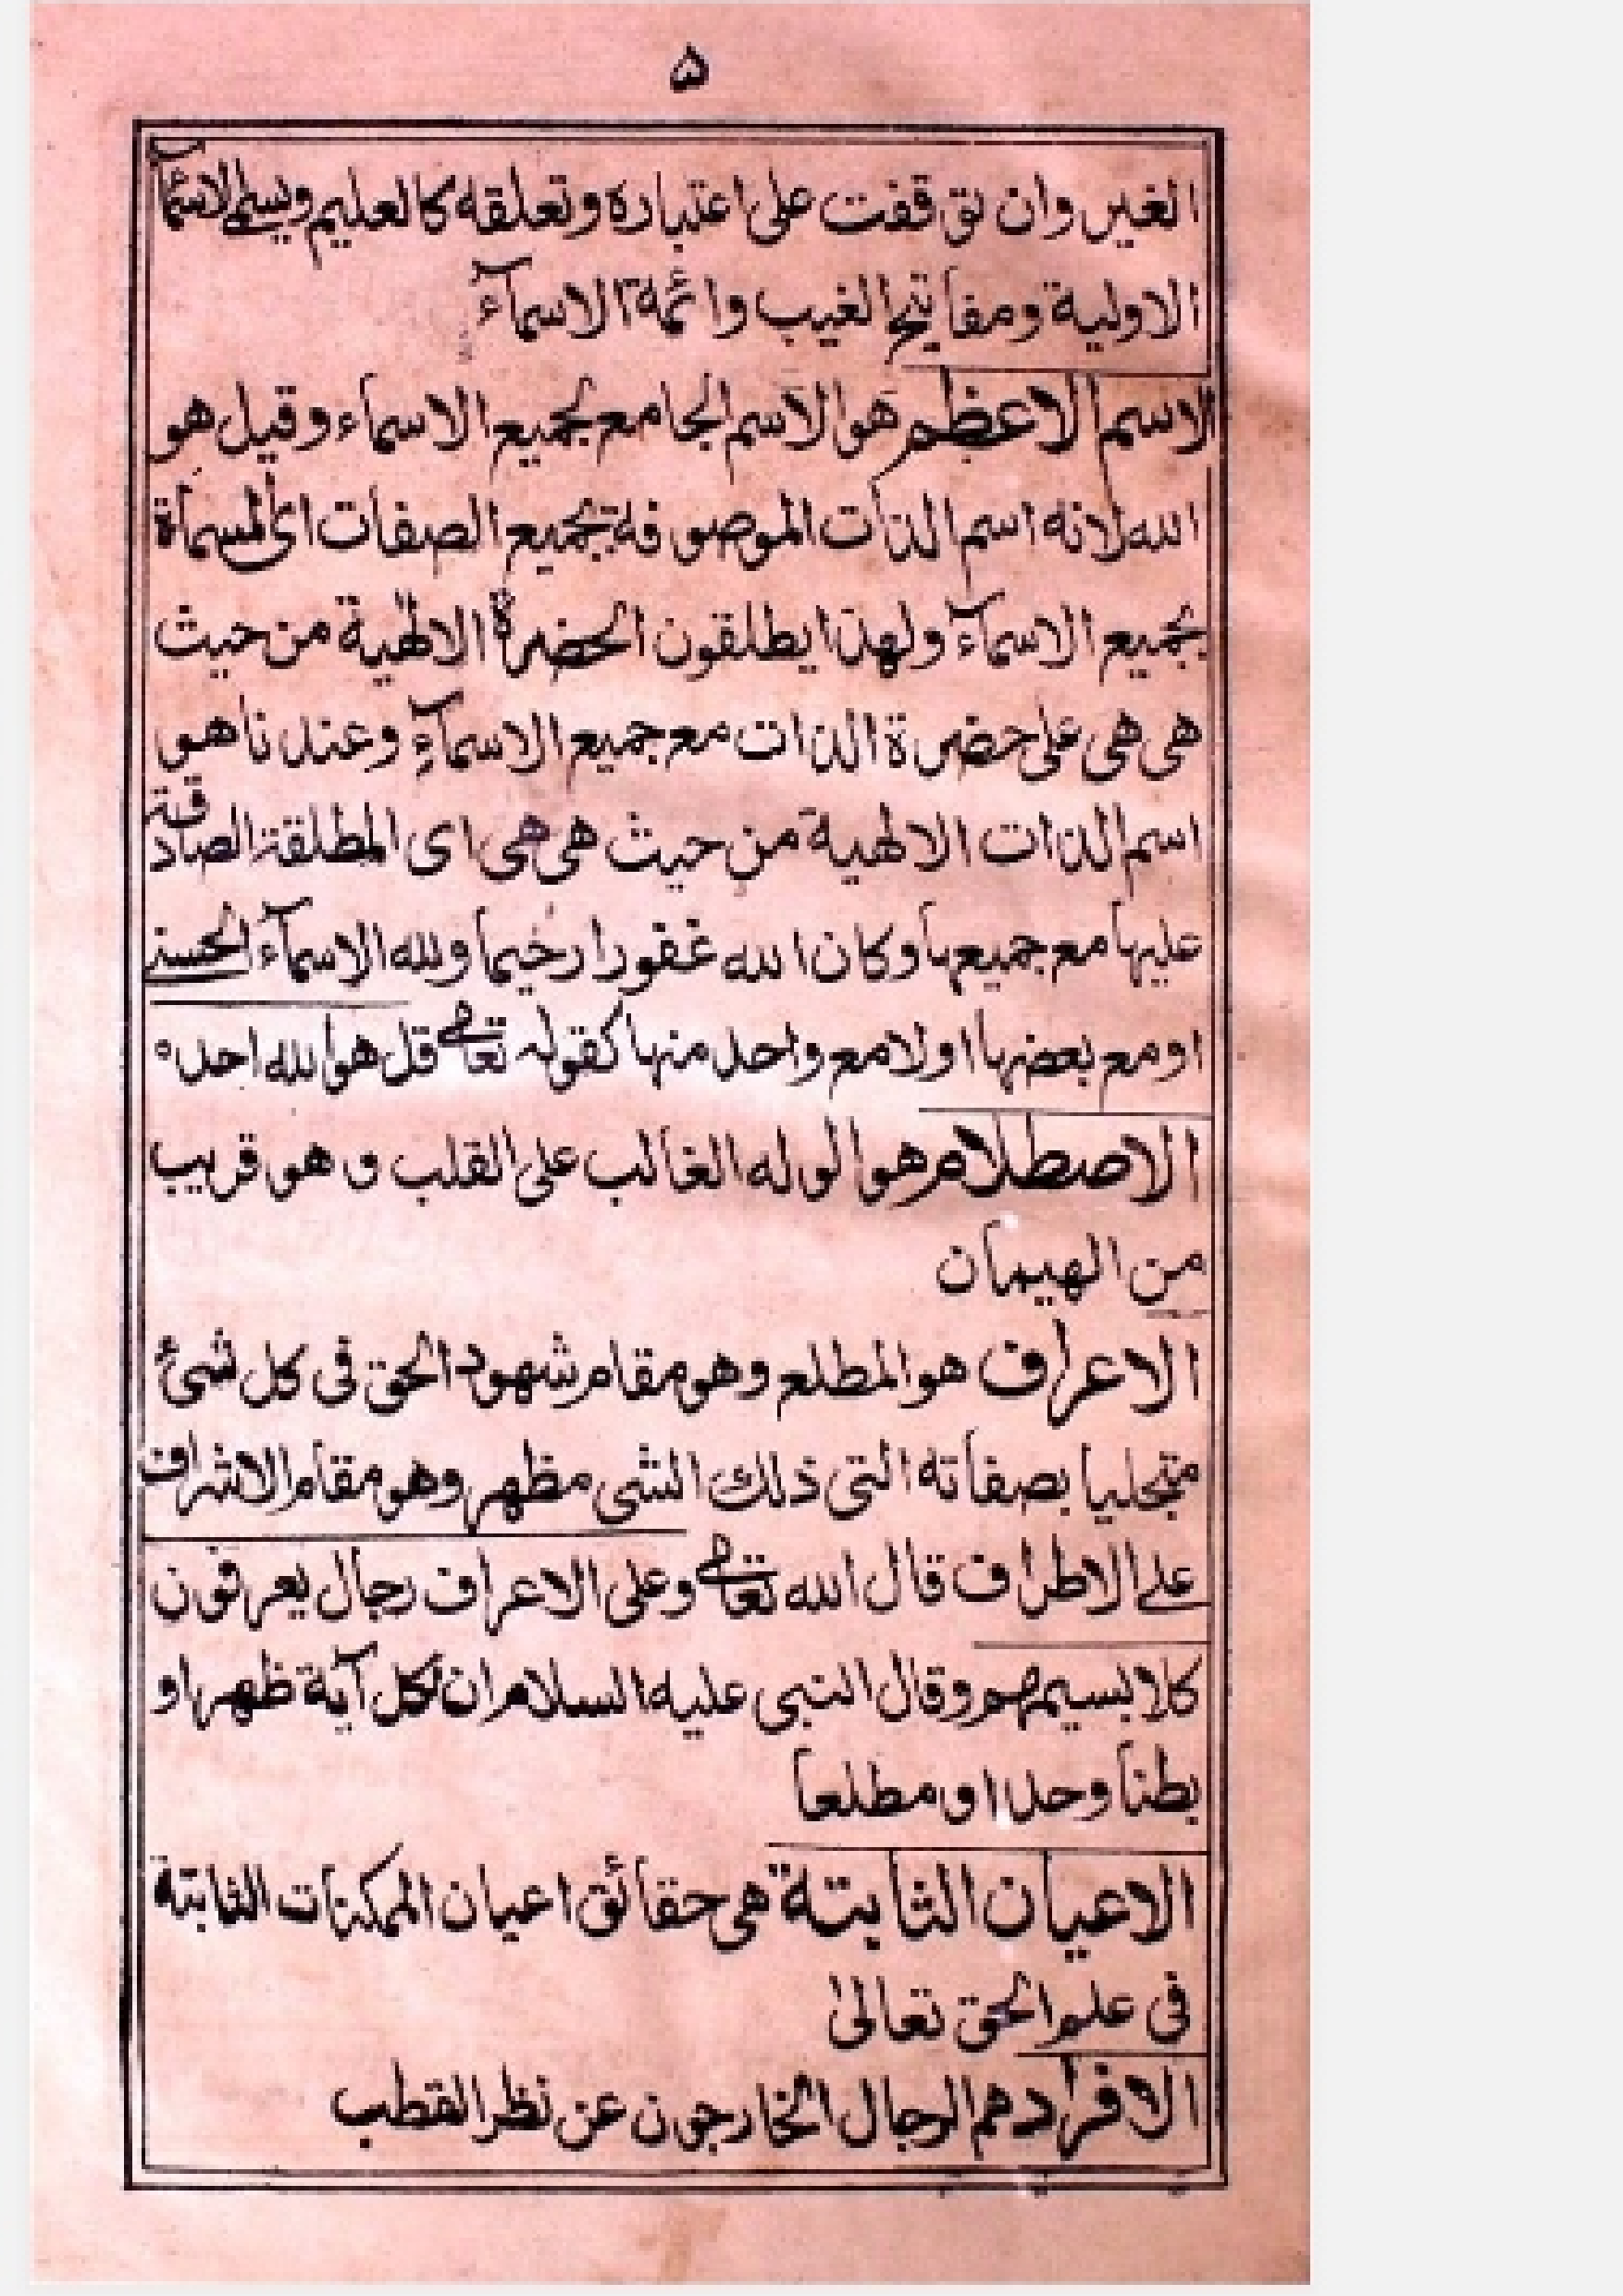 ۵
الغير وان توقفت على اعتباره وتعلقه كالعليم ويسمى الاسمآء
الاولية ومفاتيح الغيب وائمة الاسمآء
الاسم الاعظم هو الاسم الجامع لجميع الاسماء وقيل هو
الله لانه اسم الذات الموصوفة بجميع الصفات اى المسماة
بجميع الاسمآء ولهذا يطلقون الحضرة الالهية من حيث
هى هى على حضرة الذات مع جميع الاسمآء وعندنا هو
اسم الذات الالهية من حيث هى هى اى المطلقة الصادقة
عليها مع جميعها وكان الله غفورا رحيما ولله الاسمآء الحسنے
او مع بعضها اولا مع واحد منها كقوله تعالے قل هو الله احد ه
الاصطلام هو الوله الغالب على القلب و هو قريب
من الهيمان
الاعراف هو المطلع وهو مقام شهود الحق فى كل شئ
متجليا بصفاته التى ذلك الشى مظهر وهو مقام الاشراف
علے الاطراف قال الله تعالے وعلى الاعراف رجال يعرفون
كلا بسيمهم وقال النبى عليه السلام ان لكل آية ظهرا و
بطنا وحدا و مطلعا
الاعيان الثابتة هى حقائق اعيان الممكنات الثابتة
فى علم الحق تعالىٰ
الافراد هم الرجال الخارجون عن نظر القطب